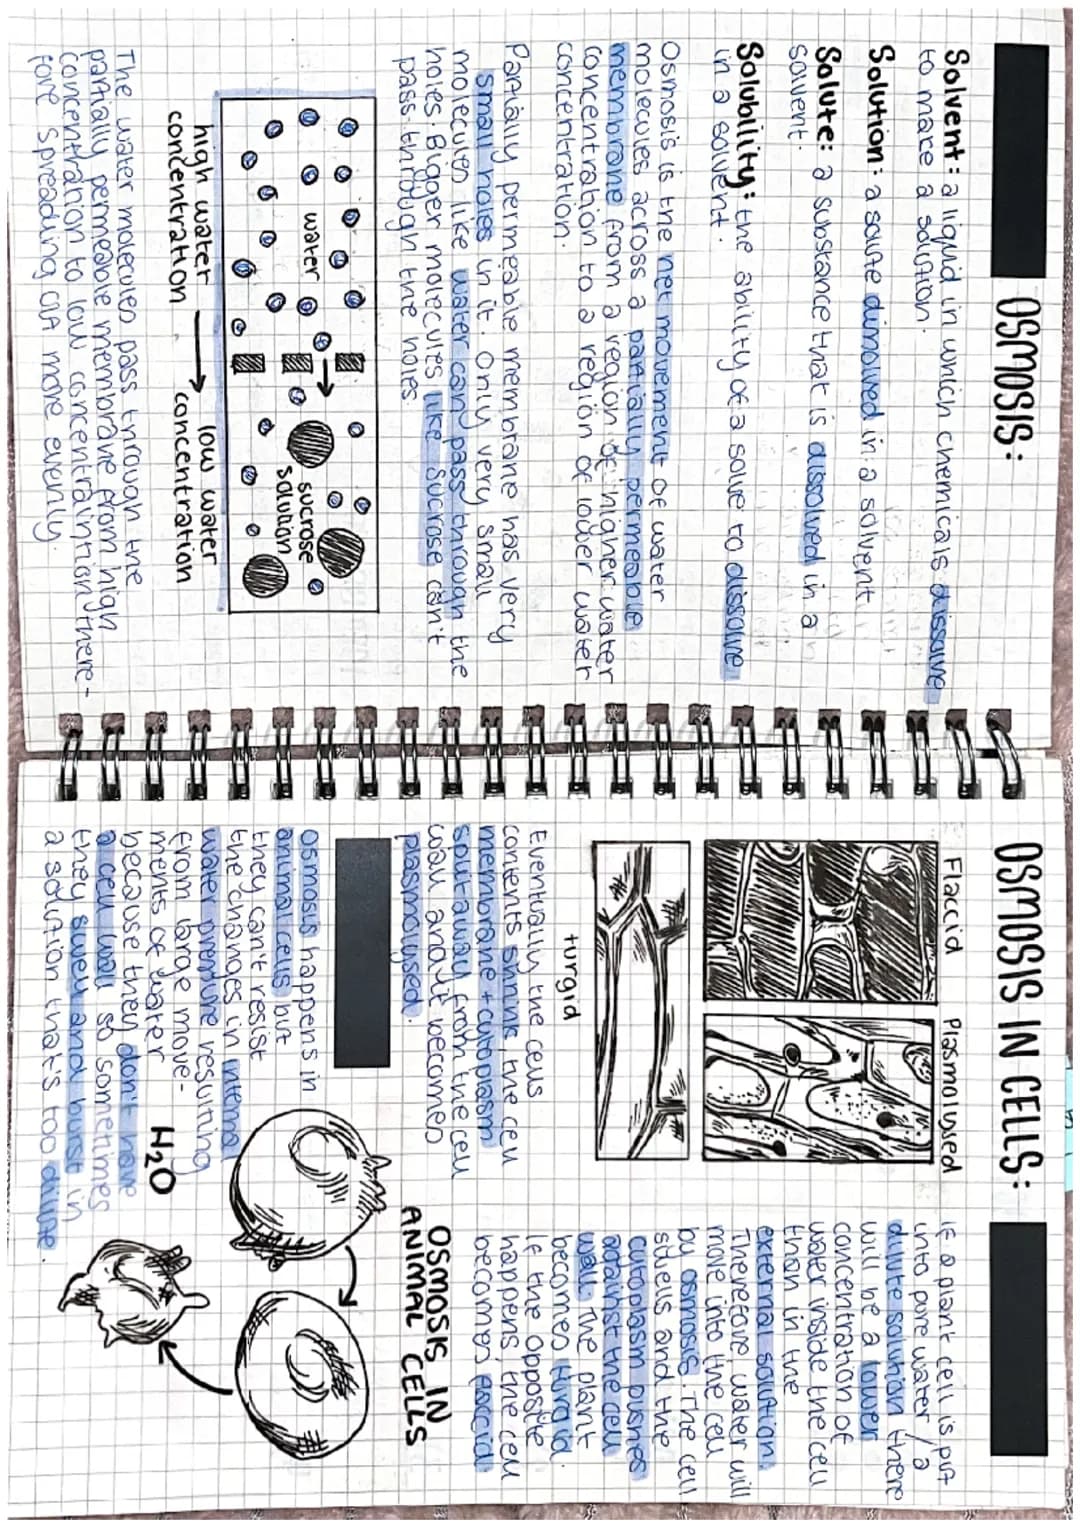 OSMOSIS:
Solvent: a liquid in which chemicals dissolve
to make a solution.
Solution: a solute dissolved in a solvent
Solute: a substance that is dissolved in a
solvent.
Solubility: the ability of a solute to dissolve
in a solvent.
Osmosis is the net movement of water
molecules across a partially permeable
membrane from a region of higher water
concentration to a region of lower water
concentration.
Partially permeable membrane has very
small holes in it. Only very small
molecules like water can pass through the
holes. Bigger molecules like sucrose can't
pass through the holes.
water
sucrose
solution
high water
concentration
low water
concentration
The water molecules pass through the
partially permeable membrane from high
concentration to low concentration, there-
fore spreading out more evenly.
OSMOSIS IN CELLS:
Flaccid
Plasmolysed
turgid
If a plant cell is put
into pure water / a
dilute solution there
will be a lower
concentration of
water inside the cell
than in the
external solution.
Therefore, water will
move into the cell
by osmosis. The cell
swells and the
cytoplasm pushes
against the cell
wall. The plant
becomes turgid.
If the opposite
happens, the cell
becomes flaccid.
Eventually the cells
contents shrink, the cell
membrane + cytoplasm
split away from the cell
wall and it becomes
plasmolysed.
Osmosis happens in
animal cells but
they can't resist
the changes in internal
water pressure resulting
from large move-
ments of water
because they don't have
a cell wall so sometimes
they swell and burst in
a solution that's too dilute.
OSMOSIS IN
ANIMAL CELLS
H₂O